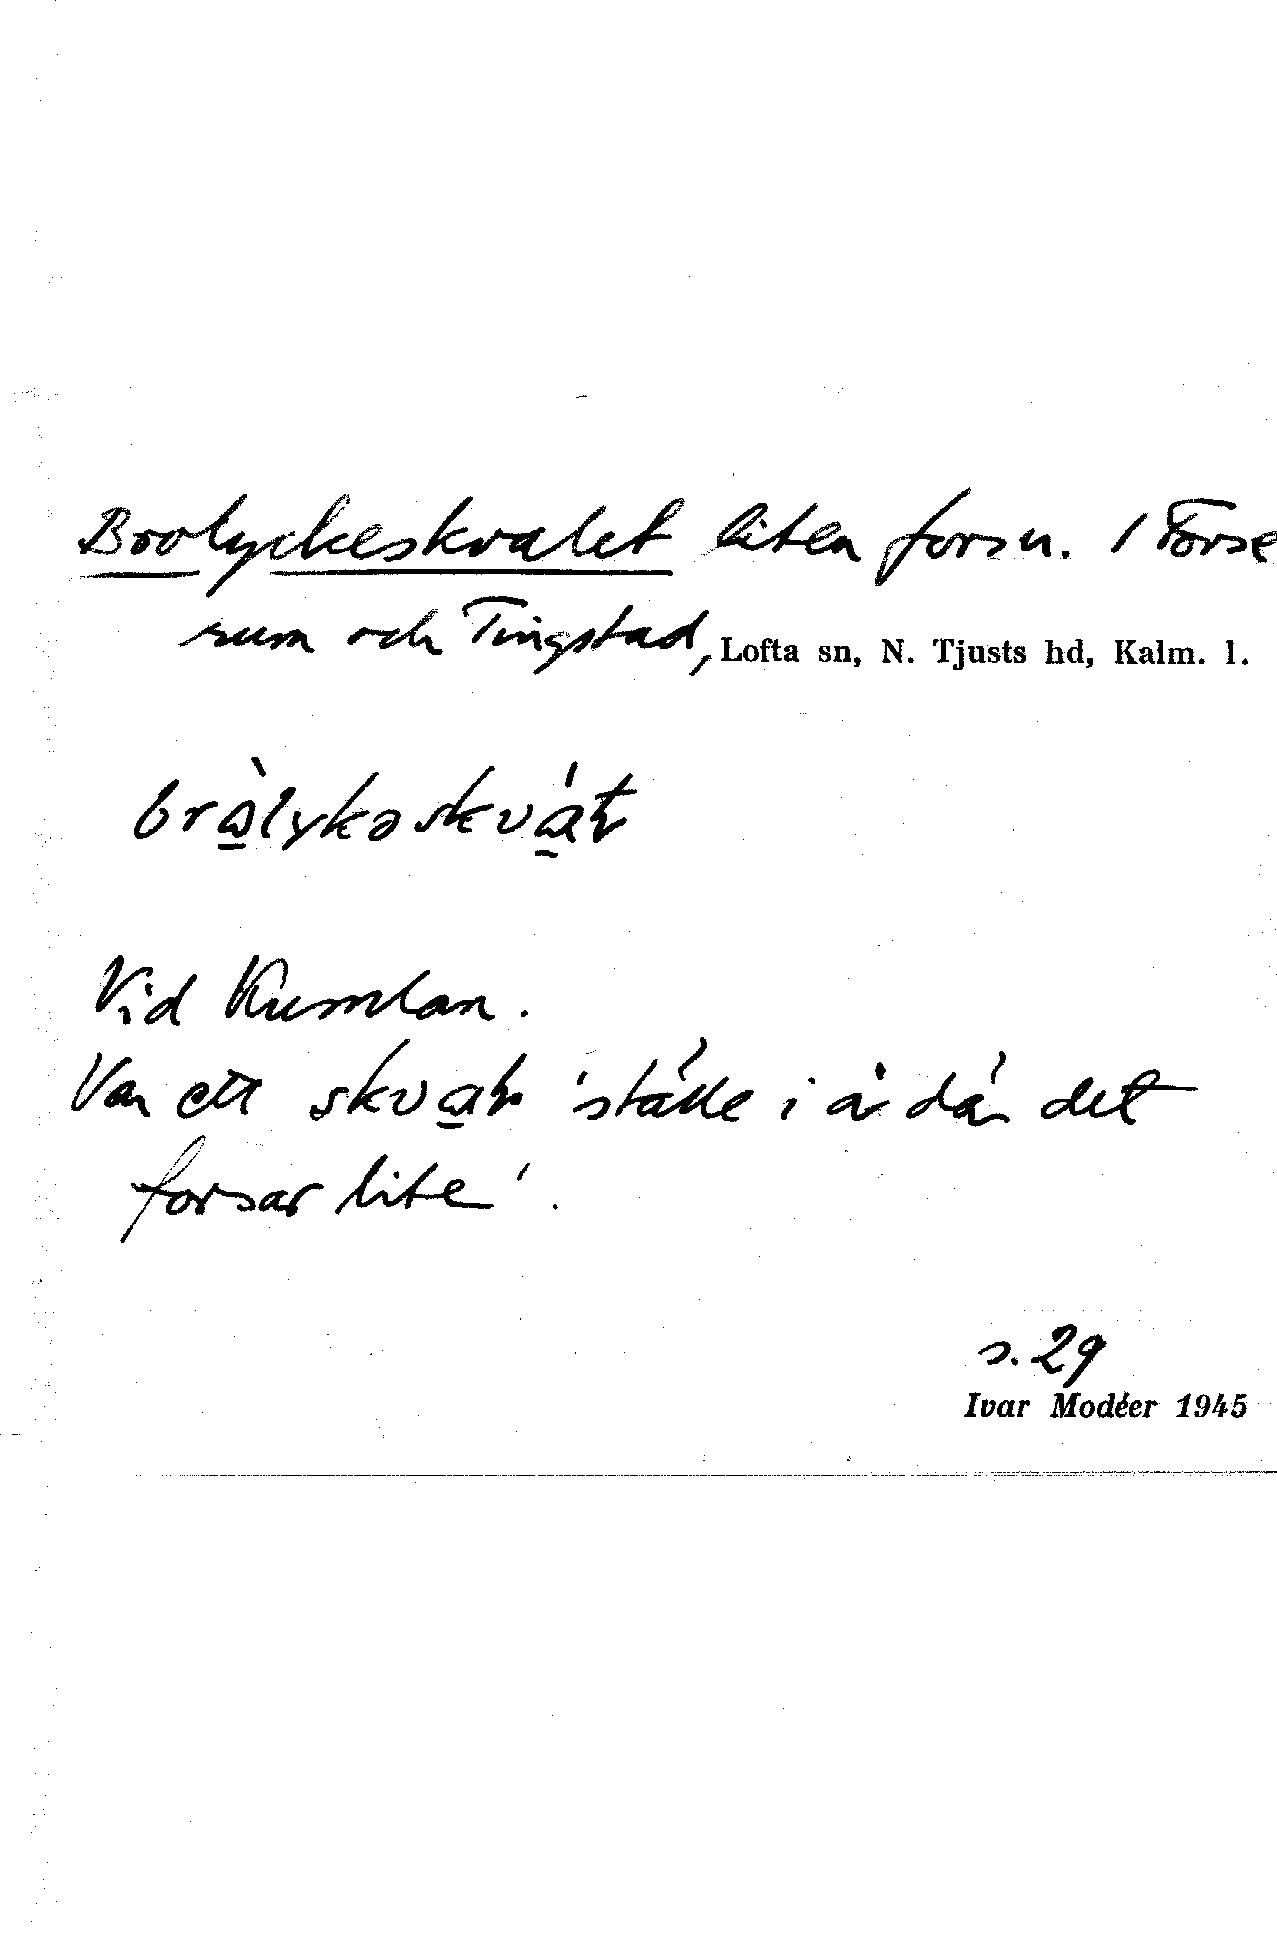 Brolyckeskvalet liten fors n. / Törse
rum och Tingstad, Lofta sn, N. Tjusts hd, Kalm. l.
Vid Kumlan.
Var ett 'ställe i å där det
forsar lite'.
s. 29
Ivar Modéer 1945